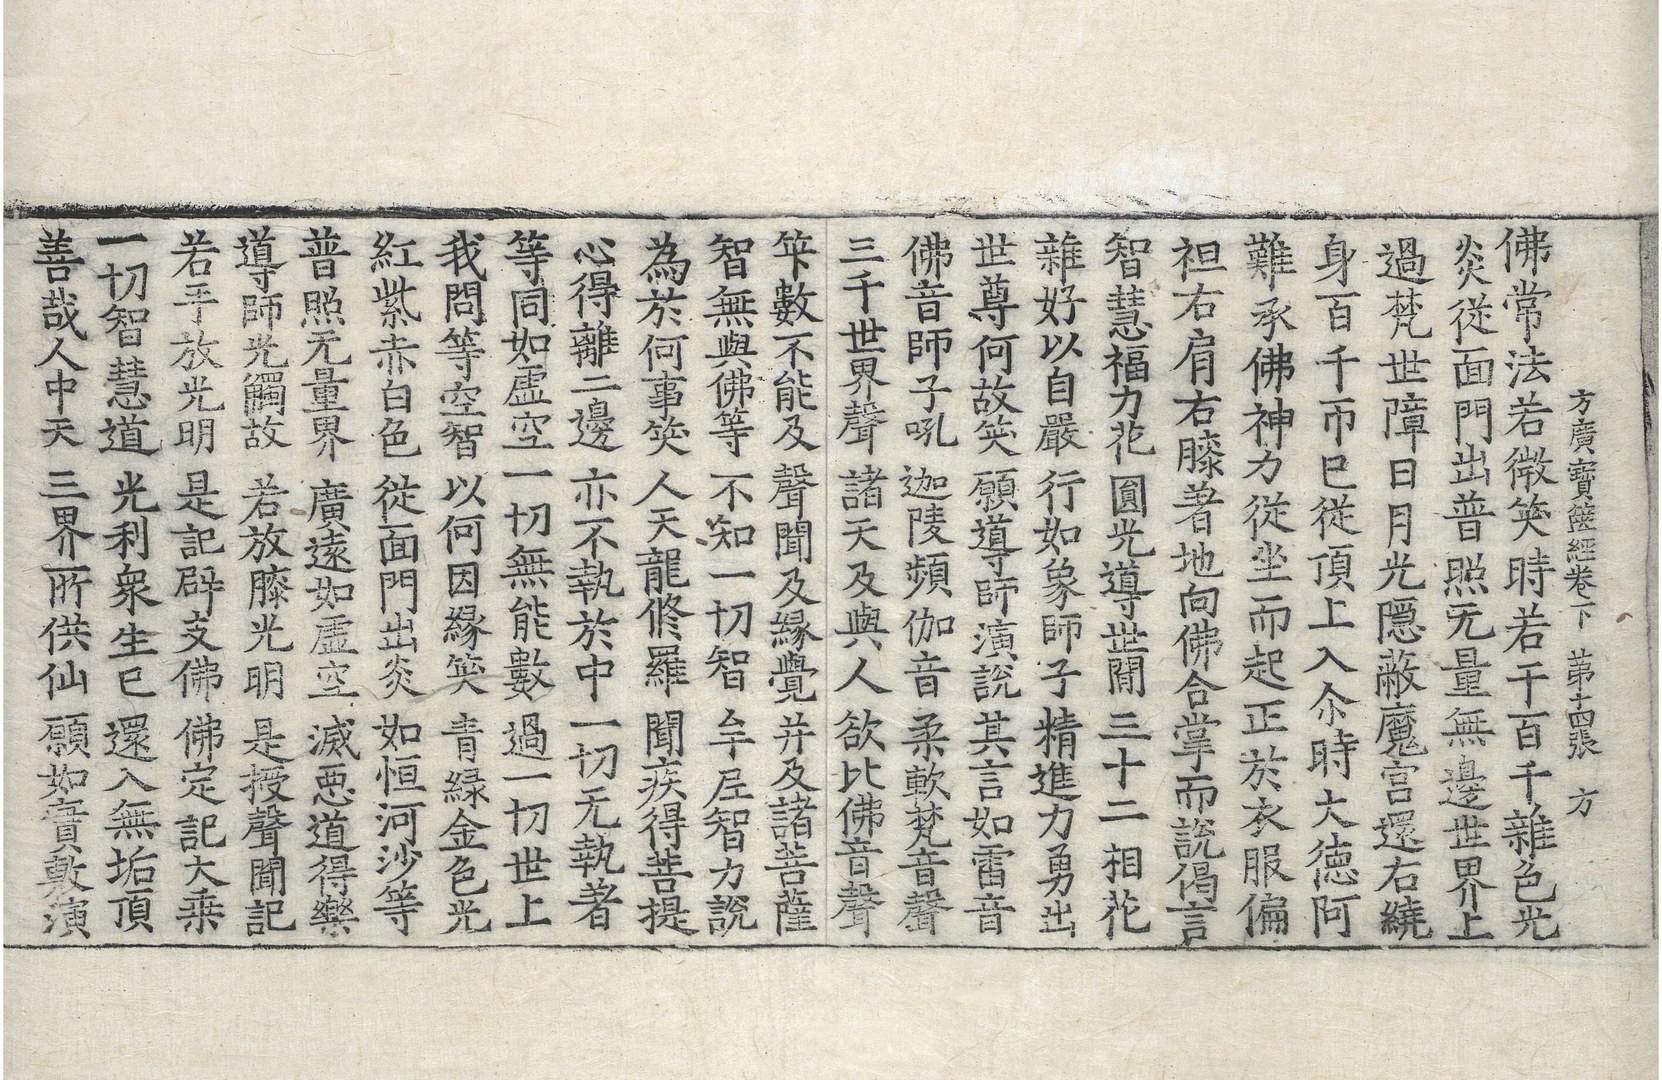 方廣寶篋經卷下 第十四張 方
佛常法若微笑時若干百千雜色光
炎從面門出普照无量無邊世界上
過梵世障日月光隱蔽魔宮還右繞
身百千帀已從頂上入尒時大德阿
難承佛神力從坐而起正於衣服偏
袒右肩右膝著地向佛合掌而說偈言
智慧福力花 圓光導世間 三十二相花
雜好以自嚴 行如象師子 精進力勇出
世尊何故笑 願導師演說 其言如雷音
佛音師子吼 迦陵頻伽音 柔軟梵音聲
三千世界聲 諸天及與人 欲比佛音聲
筭數不能及 聲聞及緣覺 并及諸菩薩
智無與佛等 不知一切智 牟尼智力說
為於何事笑 人天龍脩羅 聞疾得菩提
心得離二邊 亦不執於中 一切无執著
等同如虛空 一切無能數 過一切世上
我問等空智 以何因緣笑 青緑金色光
紅紫赤白色 從面門出炎 如恒河沙等
普照无量界 廣遠如虛空 滅惡道得樂
導師光觸故 若放膝光明 是授聲聞記
若手放光明 是記辟支佛 佛定記大乘
一切智慧道 光利衆生已 還入無垢頂
善哉人中天 三界所供仙 願如實敷演